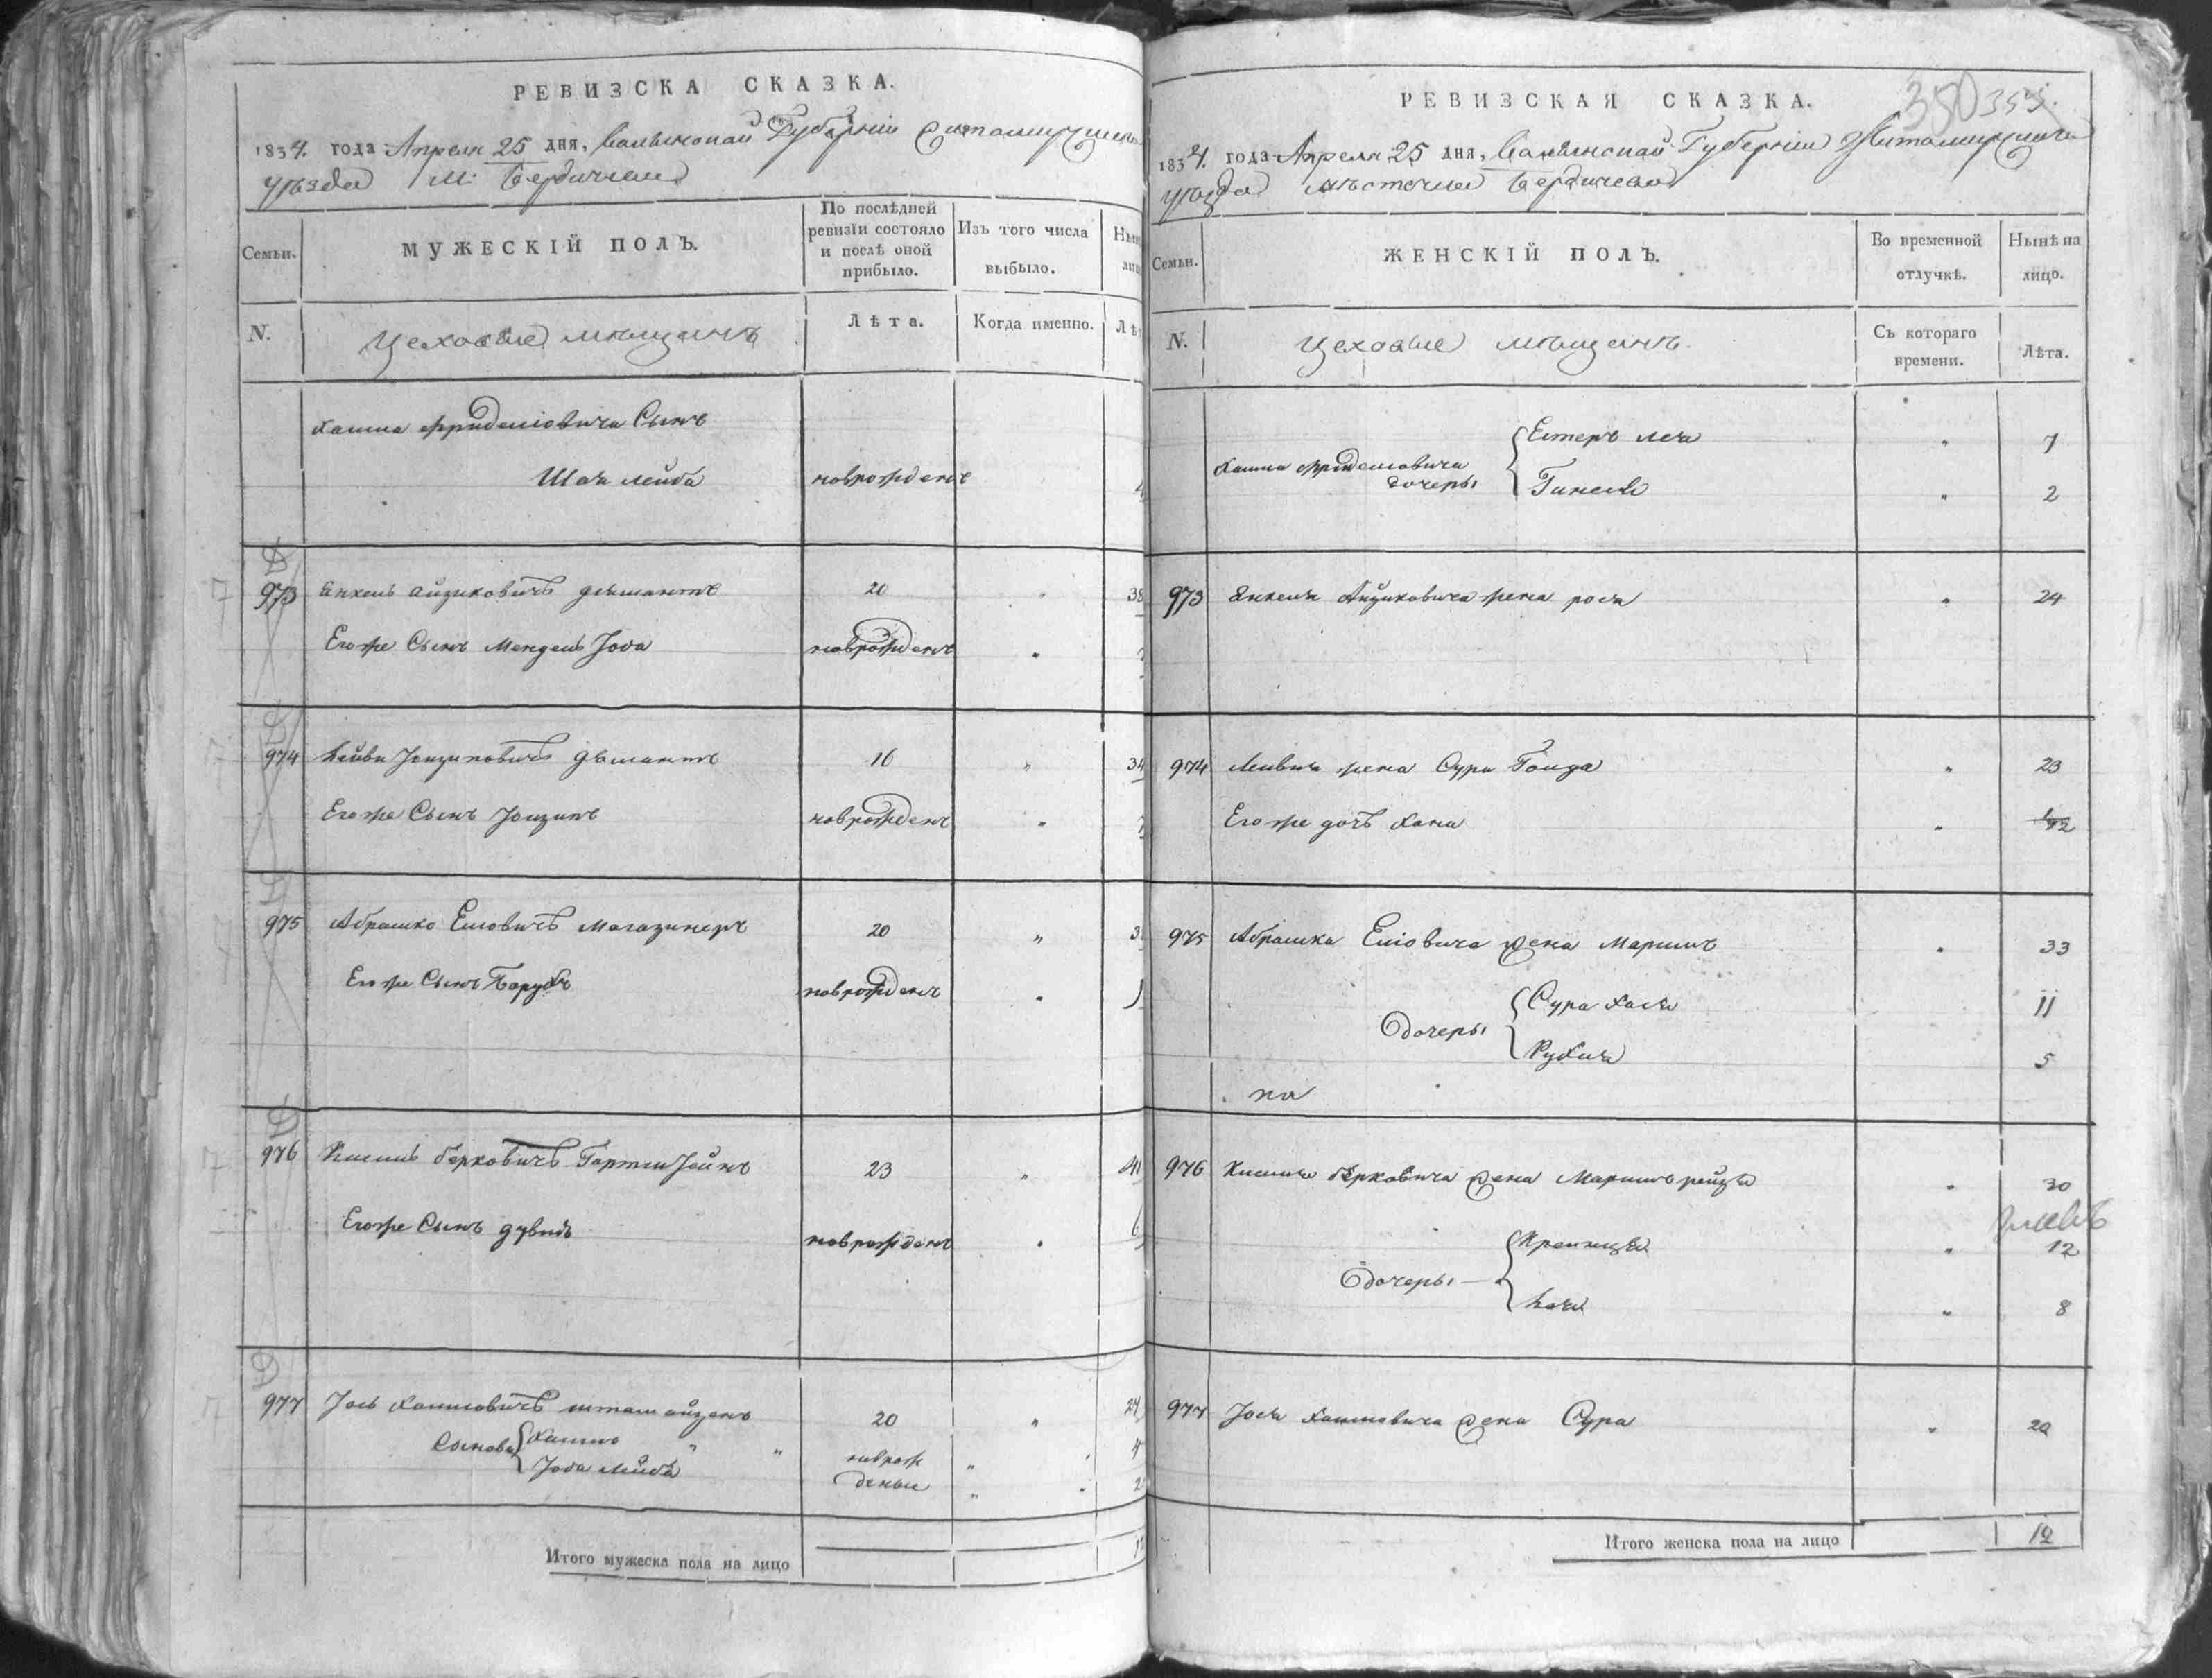 РЕВИЗСКА СКАЗКА.
1834. года Апреля 25 дня, Волынской Губернии Житомирскаго
уѣзда М: Бердичева
Семьи.
МУЖЕСКІЙ ПОЛЪ.
По послѣдней
ревизїи состояло
и послѣ оной
прибыло.
Изъ того числа
выбыло.
N.
Цеховые мѣщанъ
Лѣта.
Когда именно.
Хаима Фридилiовича Сынъ
Шая Лейба новрожденъ
973 Янкель Айзиковичъ Дѣмантъ 20 " 38
Егоже Сынъ Мендель новрожденъ "
974 Лейба Дѣмантъ 16 " 34
Егоже Сынъ новрожденъ "
975 Абрашко Елiовичъ Магазинеръ 20 "
Егоже Сынъ Борухъ новрожденъ "
976 Кисиль Берковичъ 23 " 41
Егоже Сынъ Дувидъ новрожденъ " 6
977 Іось Хаимовичъ 20 " 24
Сыновья Хаимъ " " новрож " 4
Лейба деные " " 2
Итого мужеска пола на лицо
РЕВИЗСКАЯ СКАЗКА.
350
1834. года Апреля 25 дня, Волынской Губернии Житомирскаго
уѣзда мѣстечка Бердичева
Семьи.
ЖЕНСКІЙ ПОЛЪ.
Во временной
отлучкѣ.
Нынѣ на
лицо.
N.
Цеховые мѣщанъ
Съ котораго
времени.
Лѣта.
Хаима Фридилiовича дочеры
Естеръ Лея " 7
Гинеся " 2
973 Янкеля Айзиковича жена рося " 24
974 Лейбы жена Сура Гольда " 23
Егоже дочь Хана " 2
975 Абрашка Елiовича жена Маримъ " 33
дочеры
Сура Хася 11
Рухля 5
976 Кисиля Берковича жена Маримъ рейзя " 30
дочеры
Крейнця " 12
Хая " 8
977 Іося Хаимовича жена Сура " 20
Итого женска пола на лицо 12